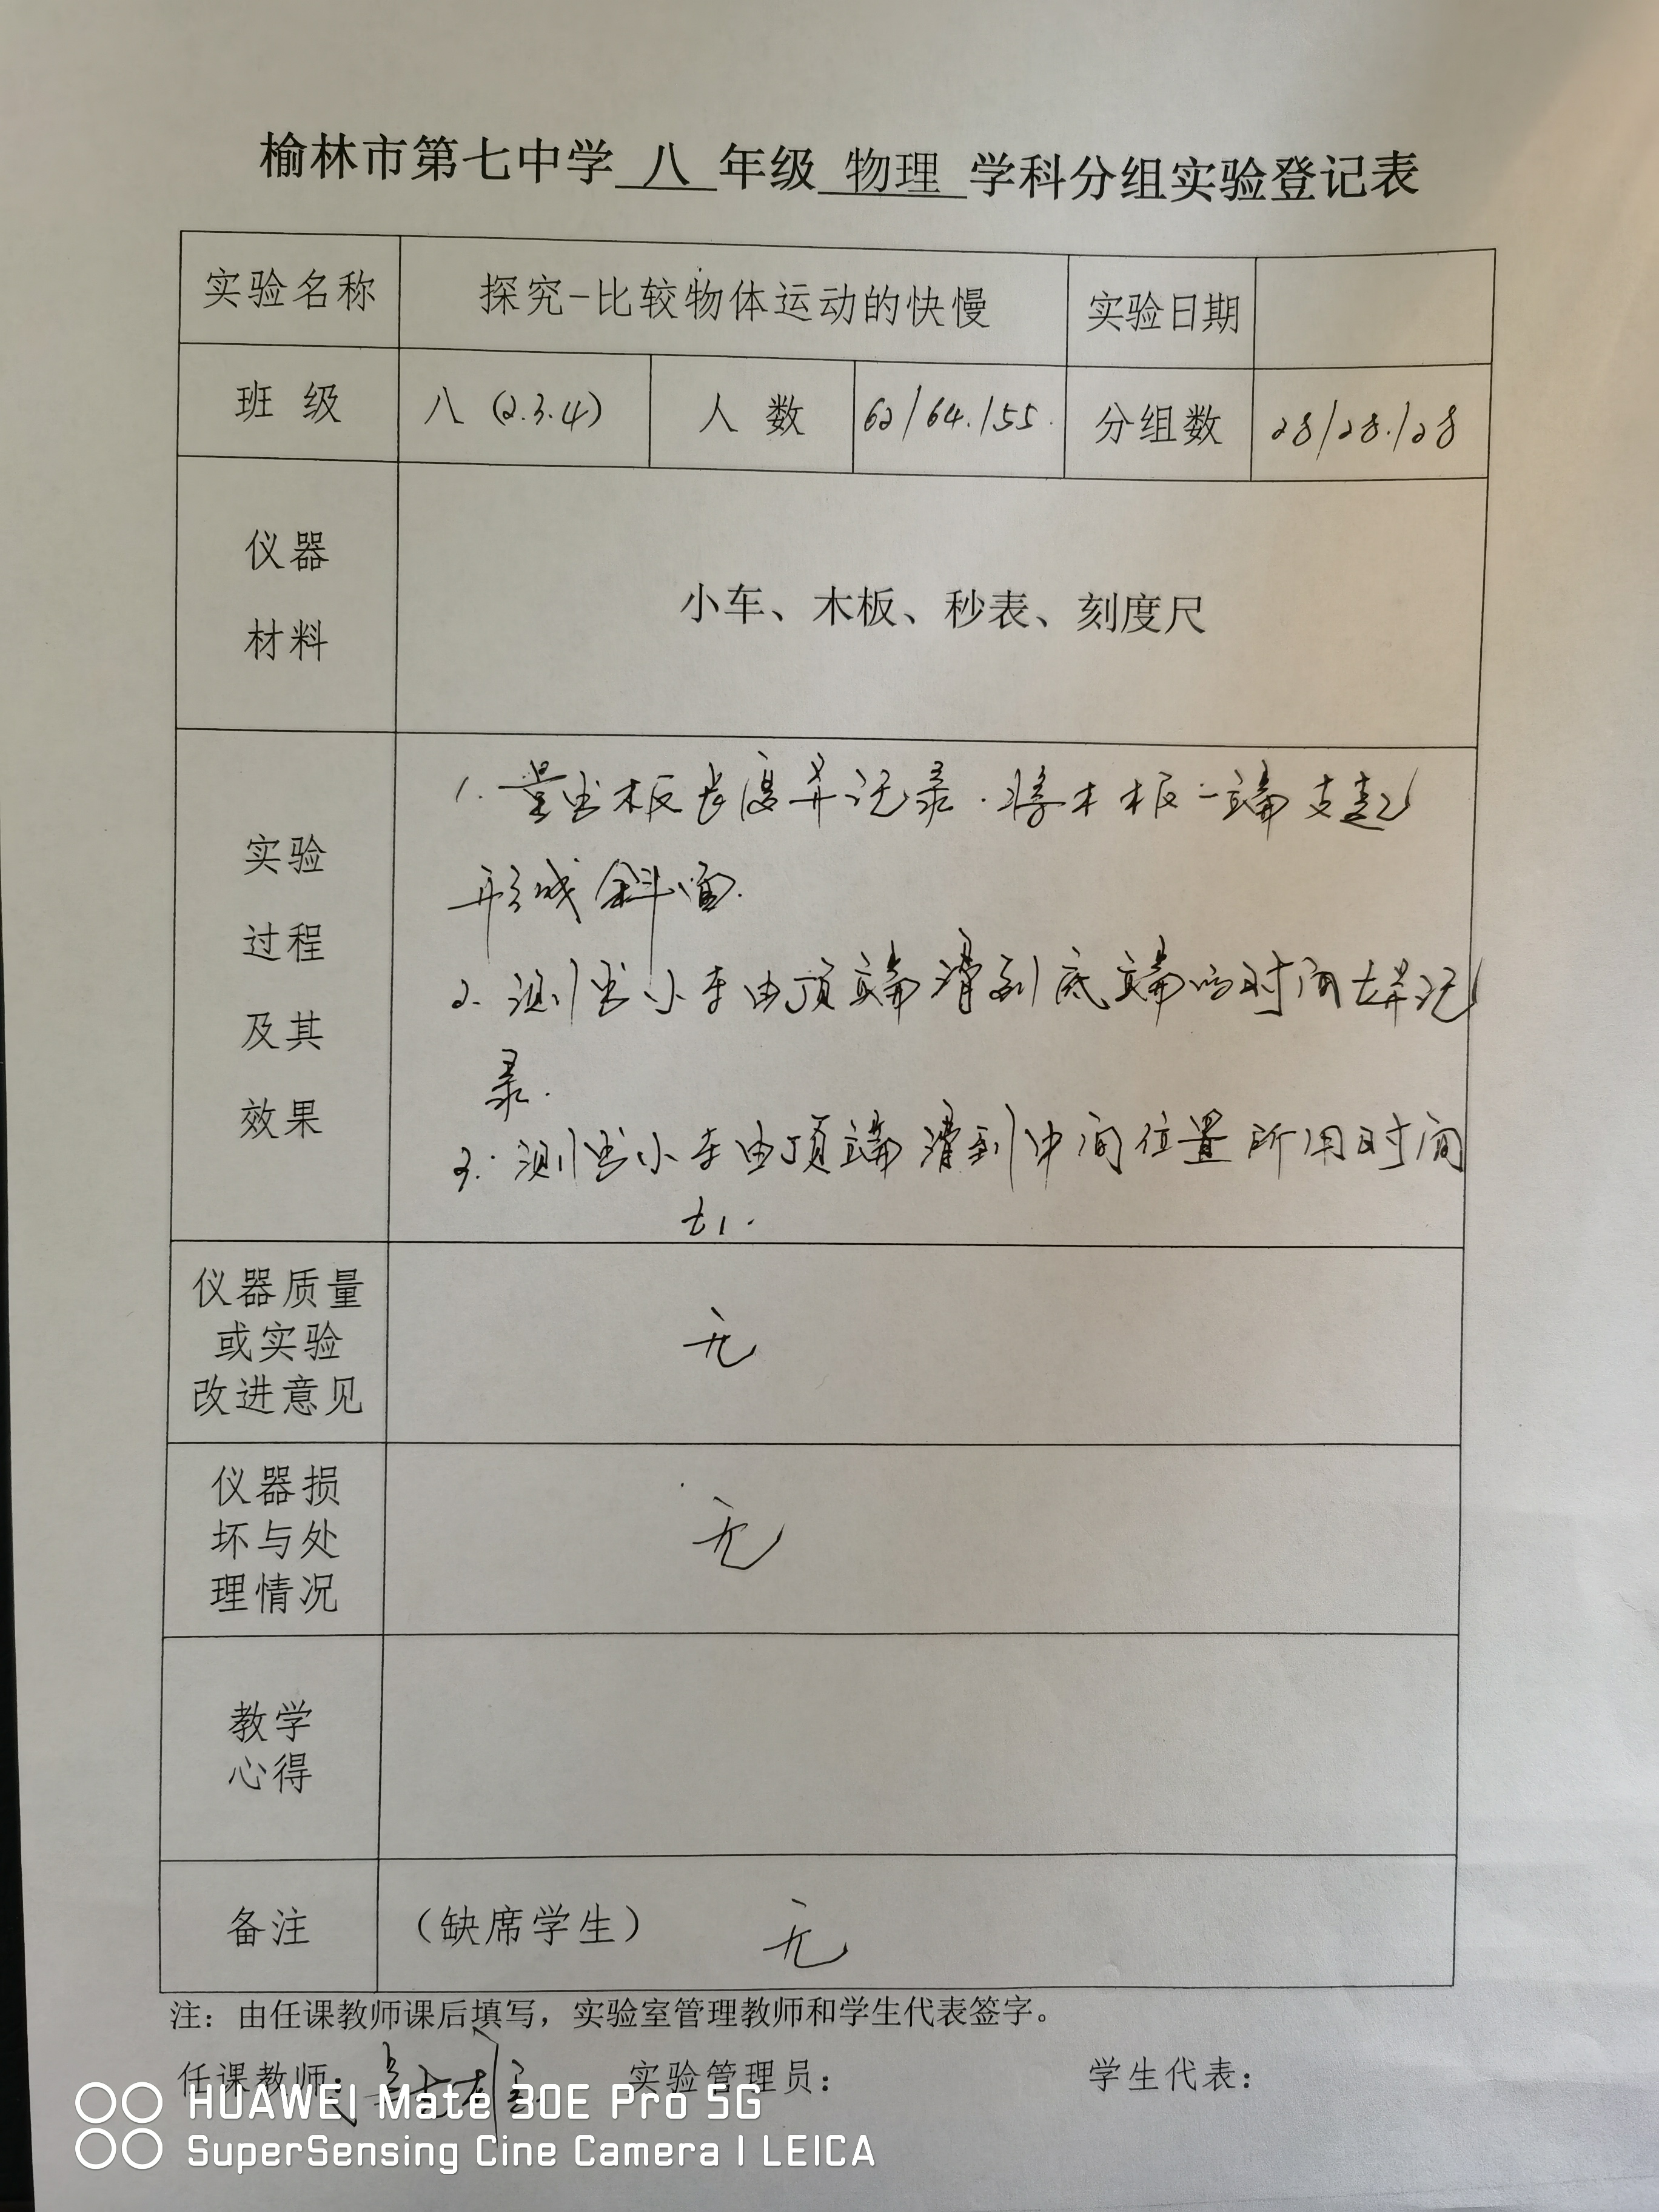 榆林市第七中学 八 年级 物理 学科分组实验登记表
实验名称 探究-比较物体运动的快慢 实验日期
班 级 八 (2.3.4) 人 数 62/64./55. 分组数 28/28./28
仪器
材料
小车、木板、秒表、刻度尺
实验
过程
及其
效果
1. 量出木板长度并记录.将木板一端支起
形成斜面.
2. 测出小车由顶端滑到底端的时间t并记
录.
3. 测出小车由顶端滑到中间位置所用时间
t1.
仪器质量
或实验
改进意见
无
仪器损
坏与处
理情况
无
教学
心得
备注 （缺席学生） 无
注：由任课教师课后填写，实验室管理教师和学生代表签字。
任课教师： 实验管理员： 学生代表：
HUAWEI Mate 30E Pro 5G
SuperSensing Cine Camera | LEICA